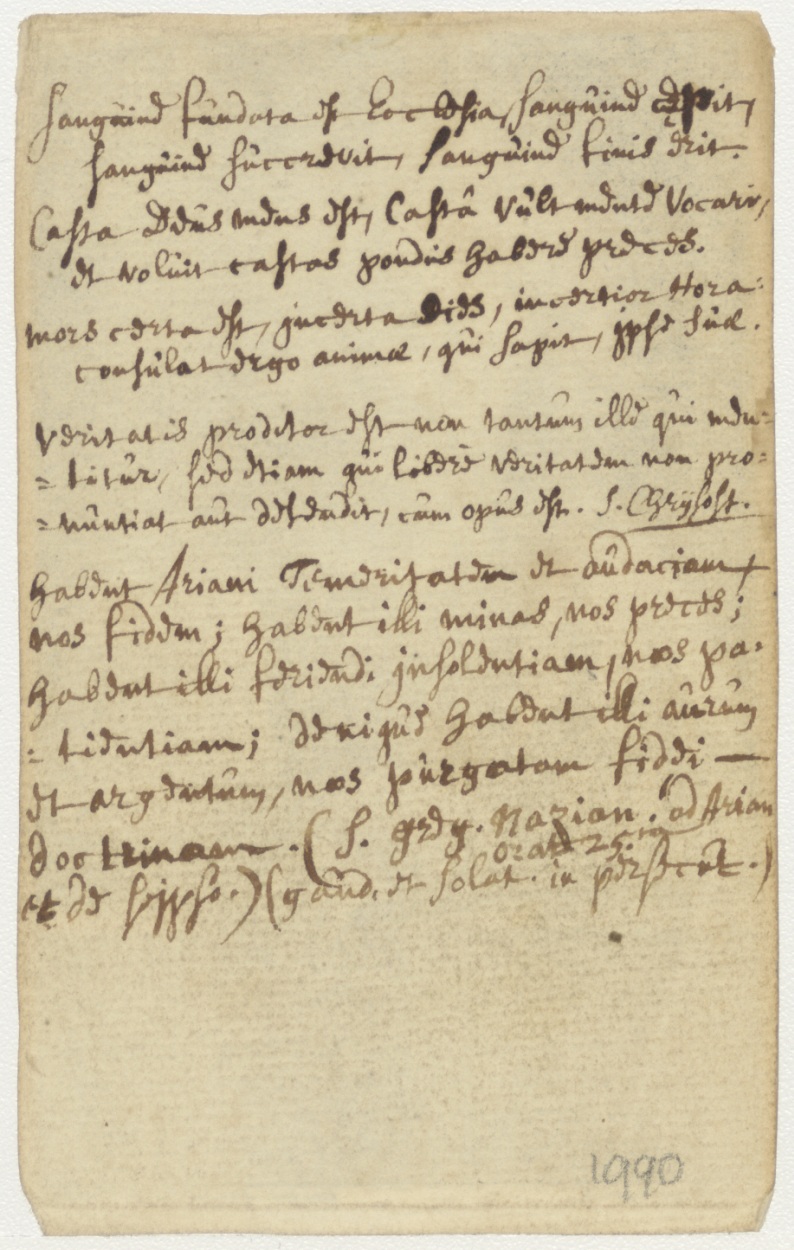 Sanguine fundata est Ecclesia, sanguine cępit,
sanguine succrevit, sanguine finis erit.
Casta Deus mens est, Castâ vult mente vocari,
et voluit castas pondus habere preces.
mors certa est, jncerta Dies, incertior Hora:
consulat ergo animæ, qui sapit, jpse suæ.
Veritatis proditor est non tantum ille qui men=
=titur, sed etiam qui liberè veritatem non pro=
=nuntiat aut defendit, cum opus est. S. Chrijsost.
habent Ariani Temeritatem et audaciam,
nos fidem; habent illi minas, nos preces;
habent illi feriendi jnsolentiam, nos pa=
=tientiam; denique habent illi aurum
et argentum, nos purgatam fidei —
doctrinam. (S. greg. Nazian. ad Arian
orat 25.ta
et de seipso.) (gaud. et solat. in persecut.)
1990